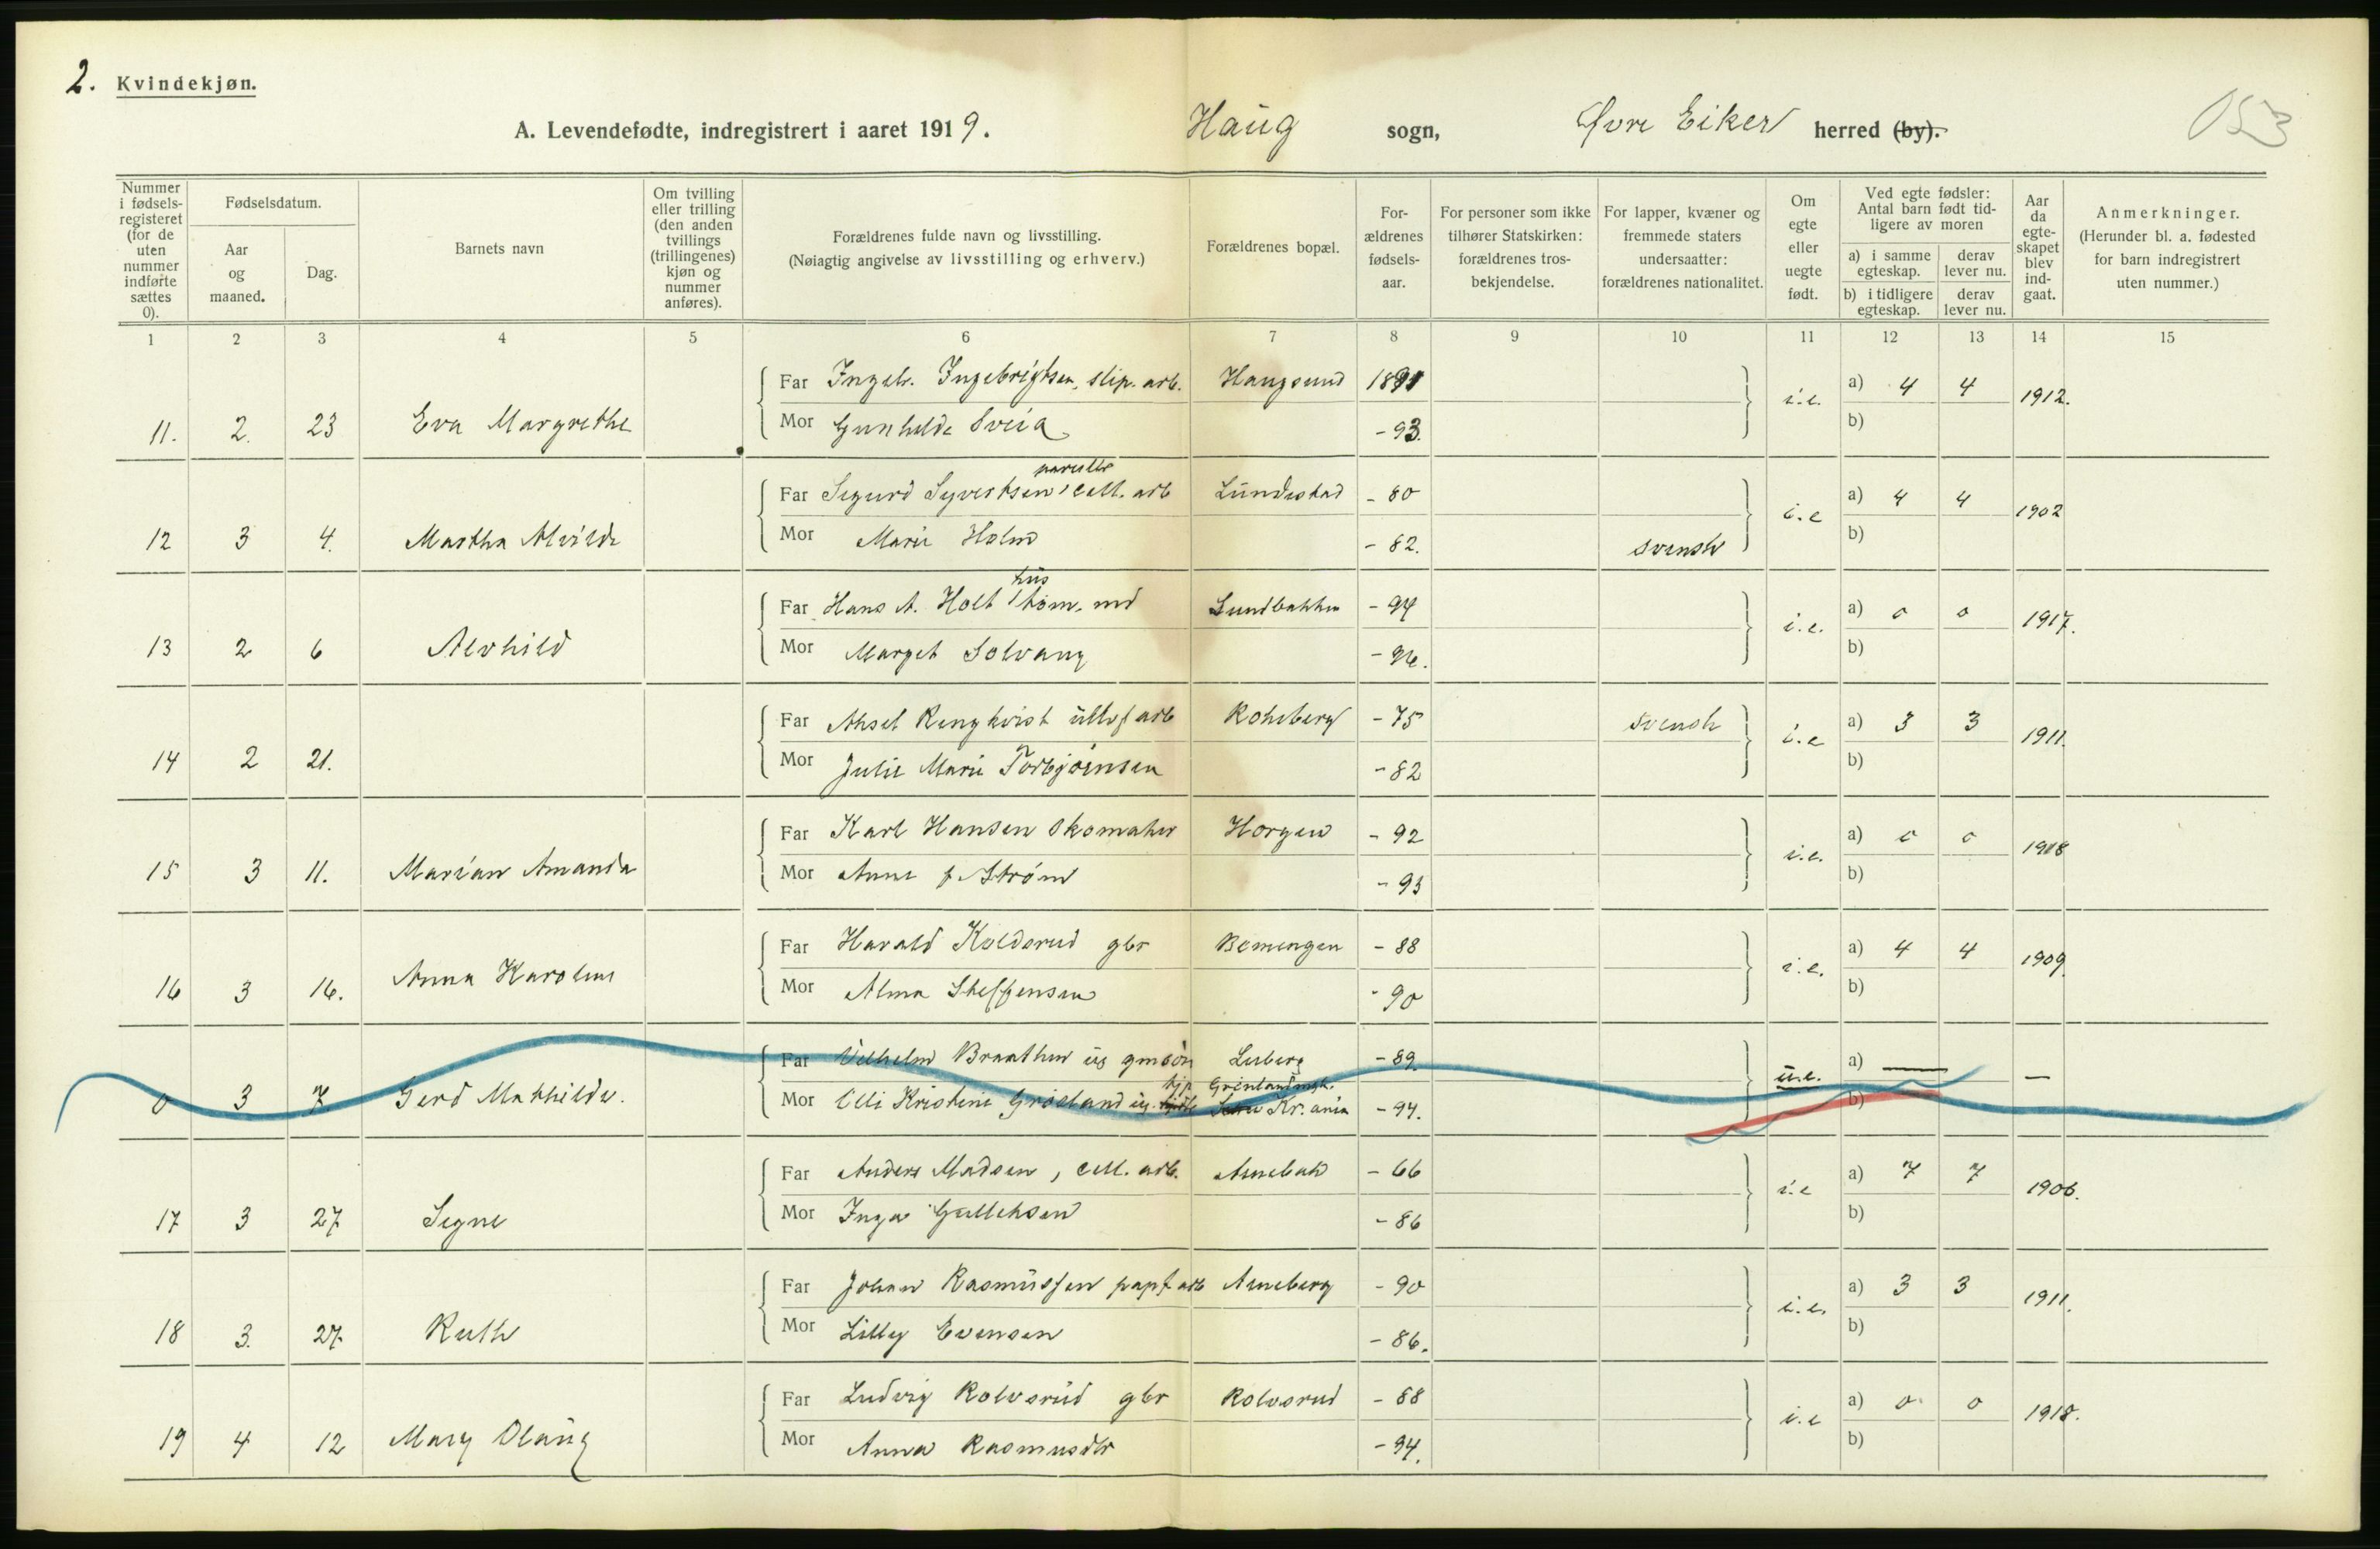 2. Kvindekjøn.
A. Levendefødte, indregistrert i aaret 1919. Haug sogn, Øvre Eiker herred (by).
053
Nummer i fødselsregisteret (for de uten nummer indførte sættes 0).
Fødselsdatum.
Aar og maaned.
Dag.
Barnets navn
Om tvilling eller trilling (den anden tvillings (trillingenes) kjøn og nummer anføres).
Forældrenes fulde navn og livsstilling. (Nøiagtig angivelse av livsstilling og erhverv.)
Forældrenes bopæl.
Forældrenes fødselsaar.
For personer som ikke tilhører Statskirken: forældrenes trosbekjendelse.
For lapper, kvæner og fremmede staters undersaatter: forældrenes nationalitet.
Om egte eller uegte født.
Ved egte fødsler: Antal barn født tidligere av moren
a) i samme egteskap. derav lever nu.
b) i tidligere egteskap. derav lever nu.
Aar da egteskapet blev indgaat.
Anmerkninger. (Herunder bl. a. fødested for barn indregistrert uten nummer.)
1 2 3 4 5 6 7 8 9 10 11 12 13 14 15
Far Ingebr. Ingebrigtsen, slip. arb. Haugsund 1891 i.e. a) 4 4 1912.
11. 2. 23 Eva Margrethe Mor Gunhilde Sveia - 93. b)
Far Sigurd Syvertsen, cell. arb Lundestad - 80 i.e a) 4 4 1902
12 3 4. Martha Alvilde Mor Marie Holm - 82. svensk b)
hus
Far Hans A. Holt tøm. md Lundbakken - 94 i.e. a) 0 0 1917.
13 2 6 Alvhild Mor Marget Solvang - 96. b)
Far Aksel Rengkvist arb - 75 svensk i.e a) 3 3 1911.
14 2 21. Mor Julie Marie Torbjørnsen - 82 b)
Far Karl Hansen skomaker Horgen - 92 i.e. a) 0 0 1918
15 3 11. Marian Amanda Mor Anne f. Strøm - 93 b)
Far Harald Kolderud gbr - 88 i.e. a) 4 4 1909.
16 3 16. Anna Karoline Mor Alma Steffensen - 90 b)
Far Vilhelm Braathen ug gmsøn Luberg - 89. u.e. a) — —
0 3 7 Gerd Mathilde. Mor Elli Kristine Grøsland ug. Kr.ania - 94. b)
Far Anders Madsen, cell. arb. - 66 i.e a) 7 7 1906.
17 3 27 Signe Mor Inga Gulliksen - 86 b)
Far Johan Rasmussen papf arb Arneberg - 90 i.e. a) 3 3 1911.
18 3. 27 Ruth Mor Lilly Evensen - 86. b)
Far Ludvig Kolvsrud gbr Kolvsrud - 88 i.e a) 0 0 1918.
19 4 12 Mary Olaug Mor Anna Rasmusdtr - 94. b)